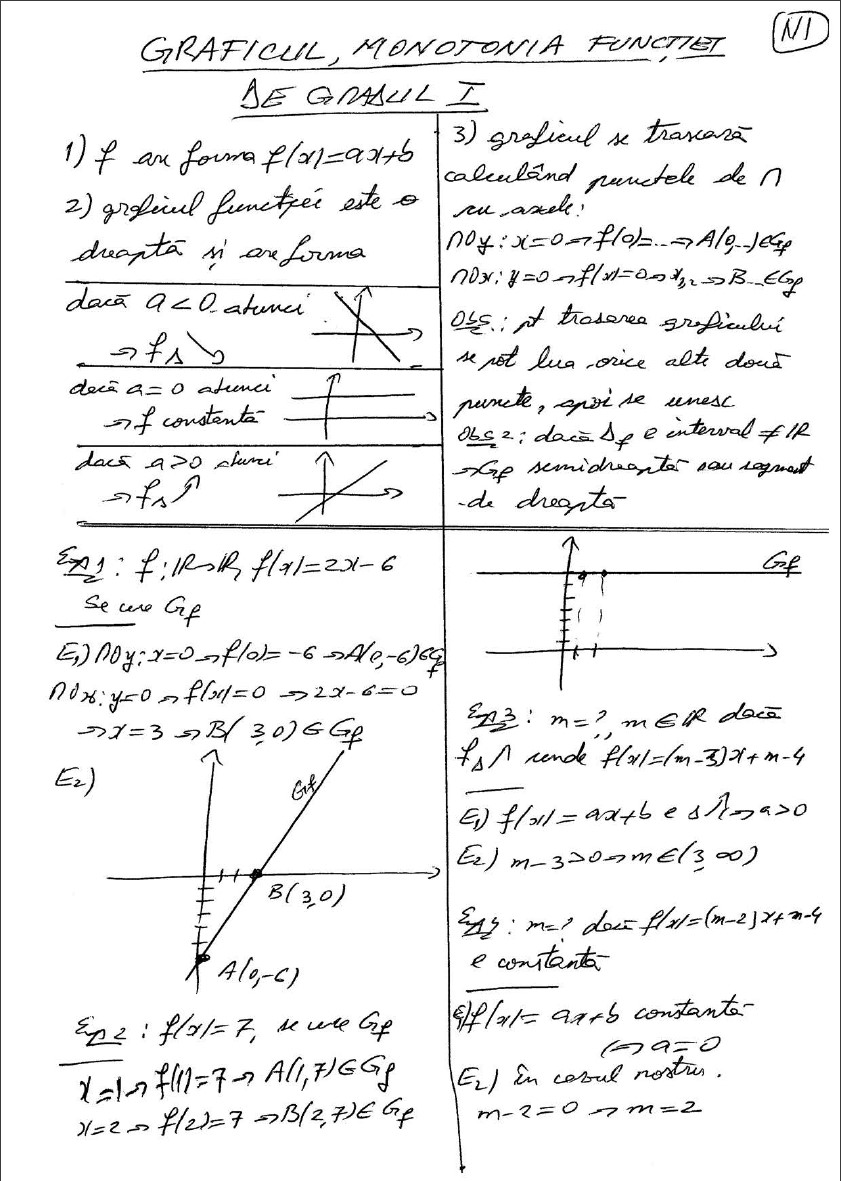 N1
GRAFICUL, MONOTONIA FUNCȚIEI
DE GRADUL I
1) f are forma f(x)=ax+b
2) graficul funcției este o
dreaptă și are forma
dacă a<0 atunci
⇒ f Δ ↘
dacă a=0 atunci
⇒ f constantă
dacă a>0 atunci
⇒ f Δ ↗
3) graficul se trasează
calculând punctele de ∩
cu axele:
∩Oy: x=0 ⇒ f(0)=... ⇒ A(0,..)∈Gf
∩Ox: y=0 ⇒ f(x)=0 ⇒ x1,2 ⇒ B...∈Gf
Obs.: pt trasarea graficului
se pot lua orice alte două
puncte, apoi se unesc
Obs 2: dacă Δf e interval ≠ IR
⇒ Gf semidreaptă sau segment
de dreaptă
Exp 1: f: IR→IR, f(x)=2x-6
Se cere Gf
E1) ∩Oy: x=0 ⇒ f(0)= -6 ⇒ A(0,-6)∈Gf
∩Ox: y=0 ⇒ f(x)=0 ⇒ 2x-6=0
⇒ x=3 ⇒ B(3,0)∈Gf
E2)
Gf
B(3,0)
A(0,-6)
Exp 2: f(x)=7, se cere Gf
x=1 ⇒ f(1)=7 ⇒ A(1,7)∈Gf
x=2 ⇒ f(2)=7 ⇒ B(2,7)∈Gf
Gf
Exp 3: m=?, m∈IR dacă
f Δ ↗ unde f(x)=(m-3)x+m-4
E1) f(x)=ax+b e Δ ↗ ⇔ a>0
E2) m-3>0 ⇒ m∈(3,∞)
Exp 4: m=? dacă f(x)=(m-2)x+m-4
e constantă
E1) f(x)= ax+b constantă
⇔ a=0
E2) În cazul nostru.
m-2=0 ⇒ m=2